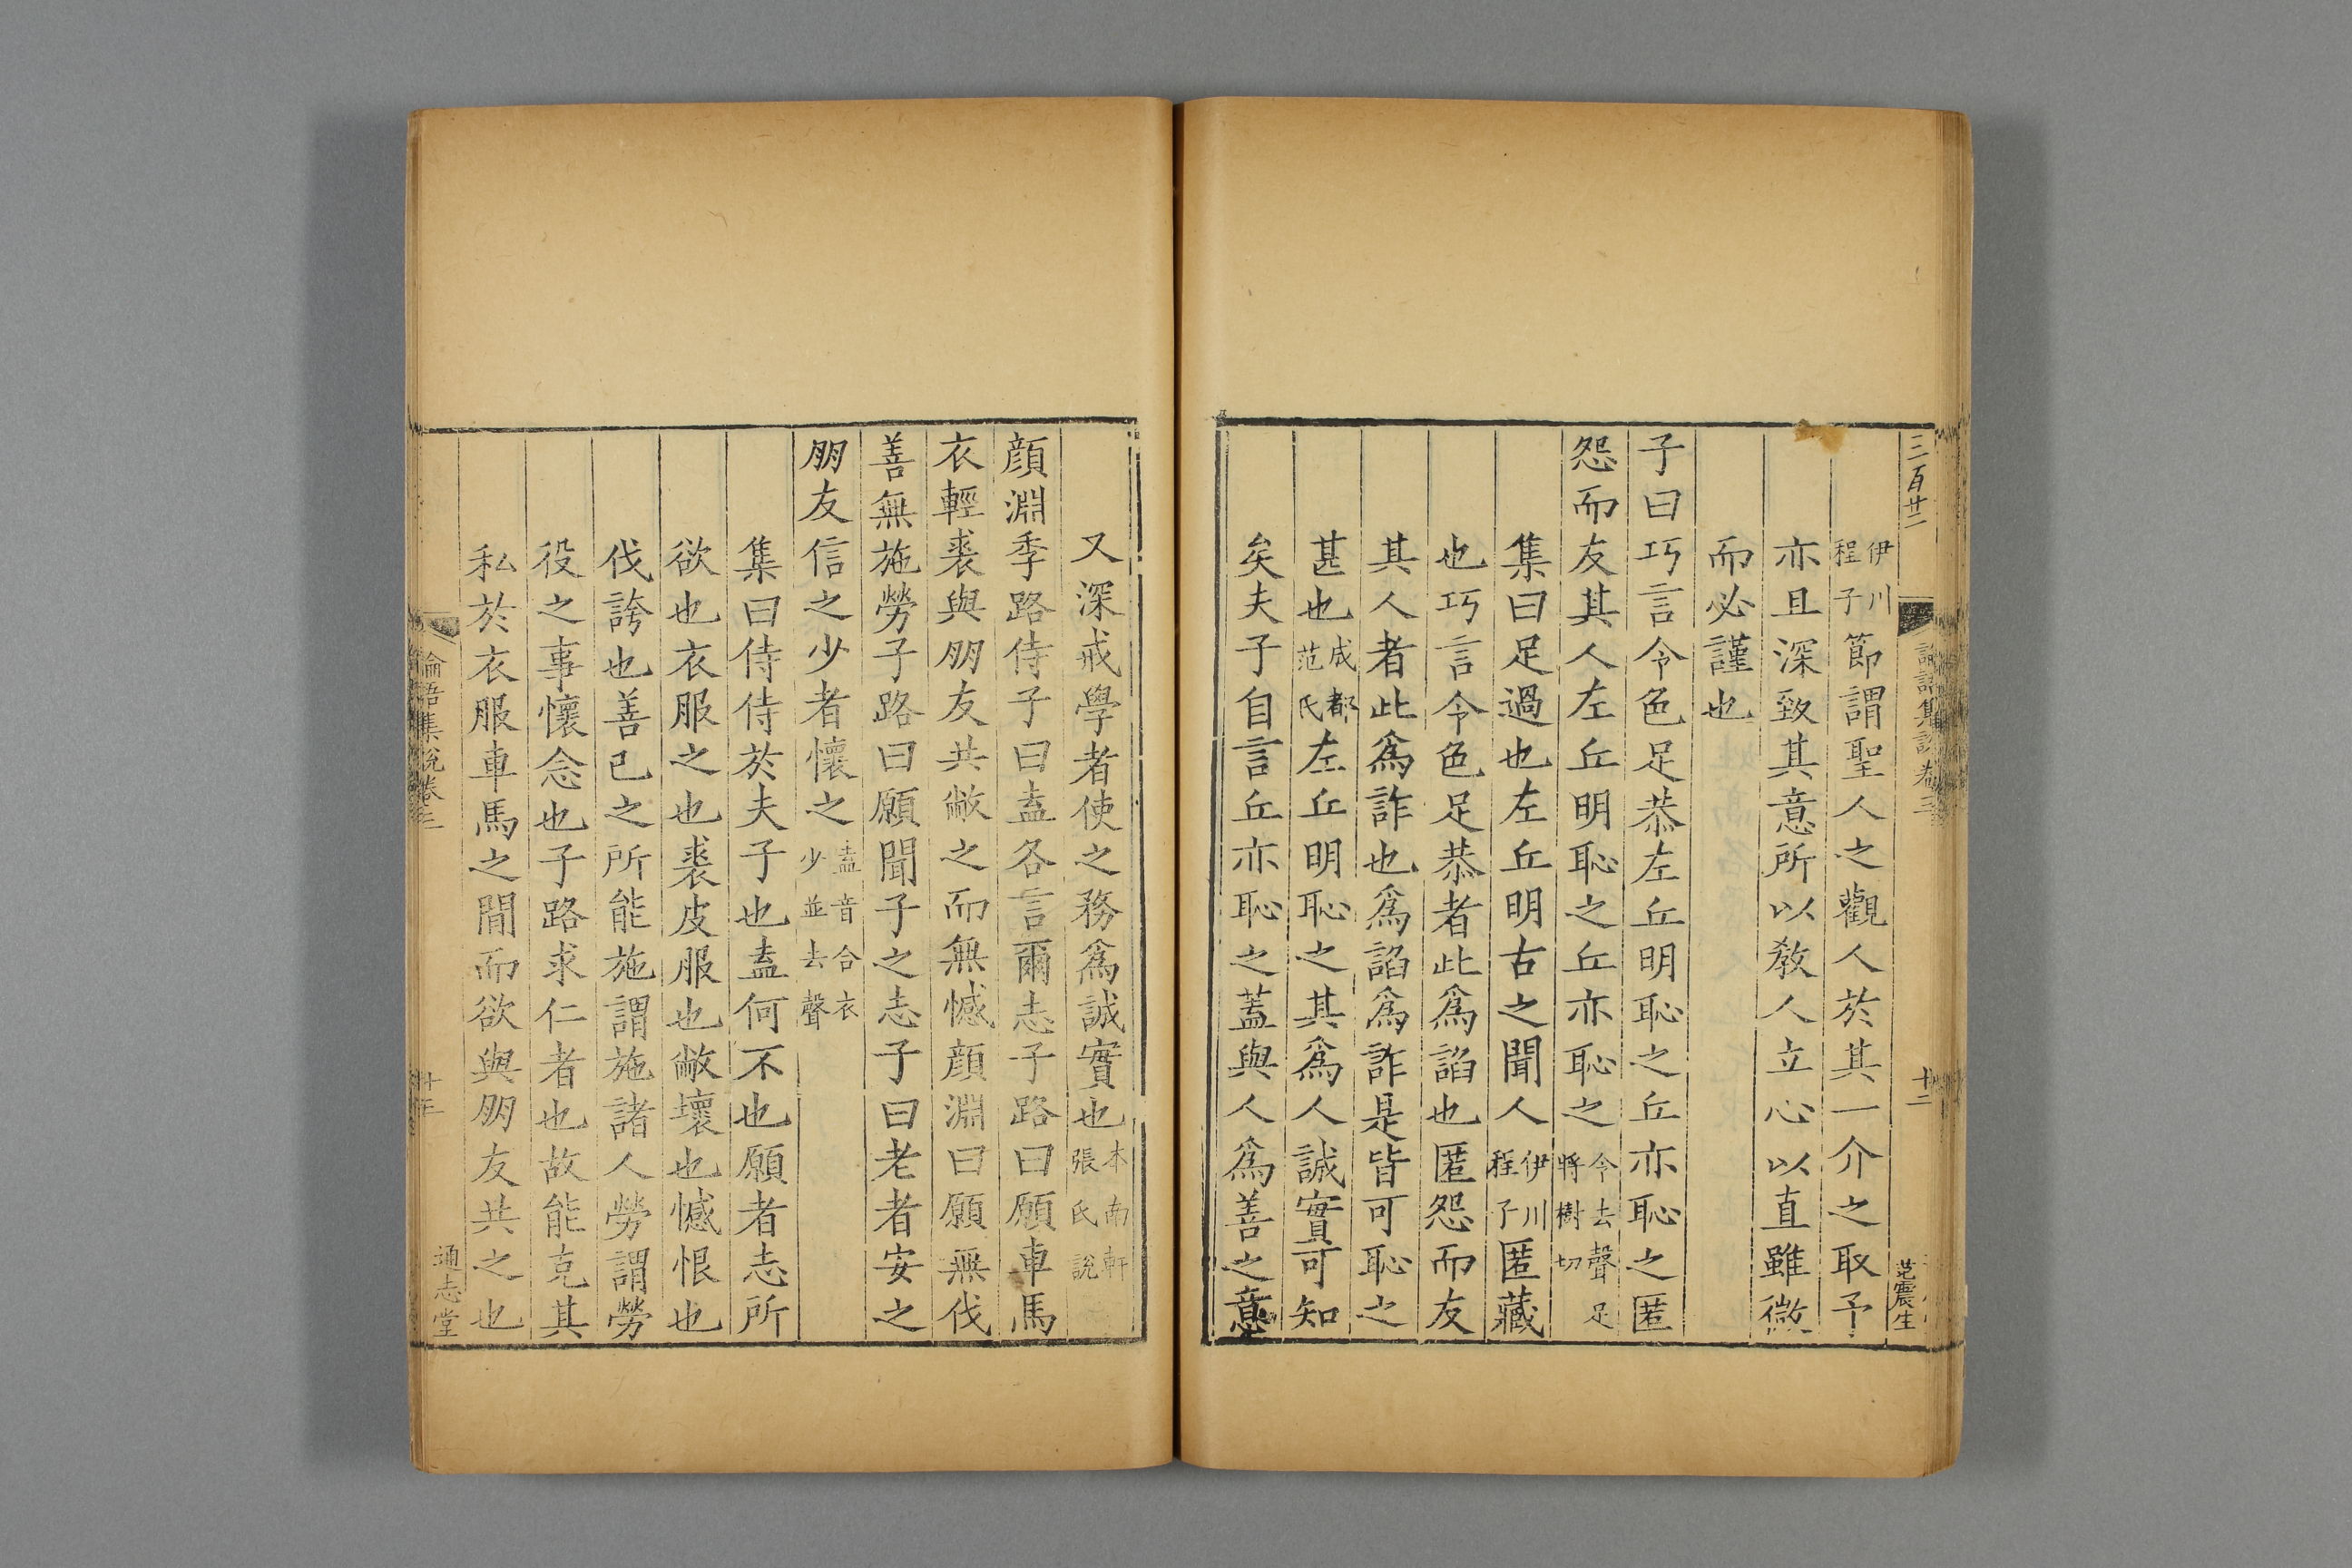 三百廿二
論語集說卷三
十二
范震生
伊川程子節謂聖人之觀人於其一介之取予
亦且深致其意所以教人立心以直雖微
而必謹也
子曰巧言令色足恭左丘明恥之丘亦恥之匿
怨而友其人左丘明恥之丘亦恥之令去聲足將樹切
集曰足過也左丘明古之聞人伊川程子匿藏
也巧言令色足恭者此爲諂也匿怨而友
其人者此爲詐也爲諂爲詐是皆可恥之
甚也成都范氏左丘明恥之其爲人誠實可知
矣夫子自言丘亦恥之蓋與人爲善之意
又深戒學者使之務爲誠實也本南軒張氏說
顔淵季路侍子曰盍各言爾志子路曰願車馬
衣輕裘與朋友共敝之而無憾顔淵曰願無伐
善無施勞子路曰願聞子之志子曰老者安之
朋友信之少者懷之盍音合衣少並去聲
集曰侍侍於夫子也盍何不也願者志所
欲也衣服之也裘皮服也敝壞也憾恨也
伐誇也善已之所能施謂施諸人勞謂勞
役之事懷念也子路求仁者也故能克其
私於衣服車馬之間而欲與朋友共之也
論語集說卷三
十三
通志堂